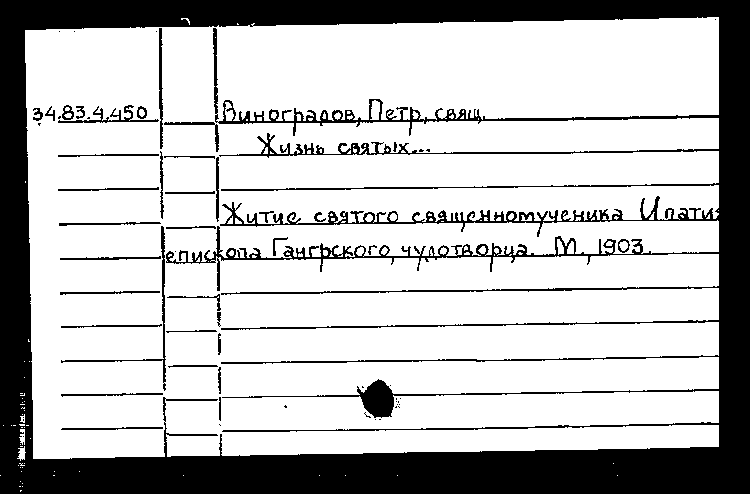 34.83.4.450 Виноградов, Петр, свящ.
Жизнь святых...
Житие святого священномученика Ипатия
епископа Гангрского, чудотворца. М., 1903.